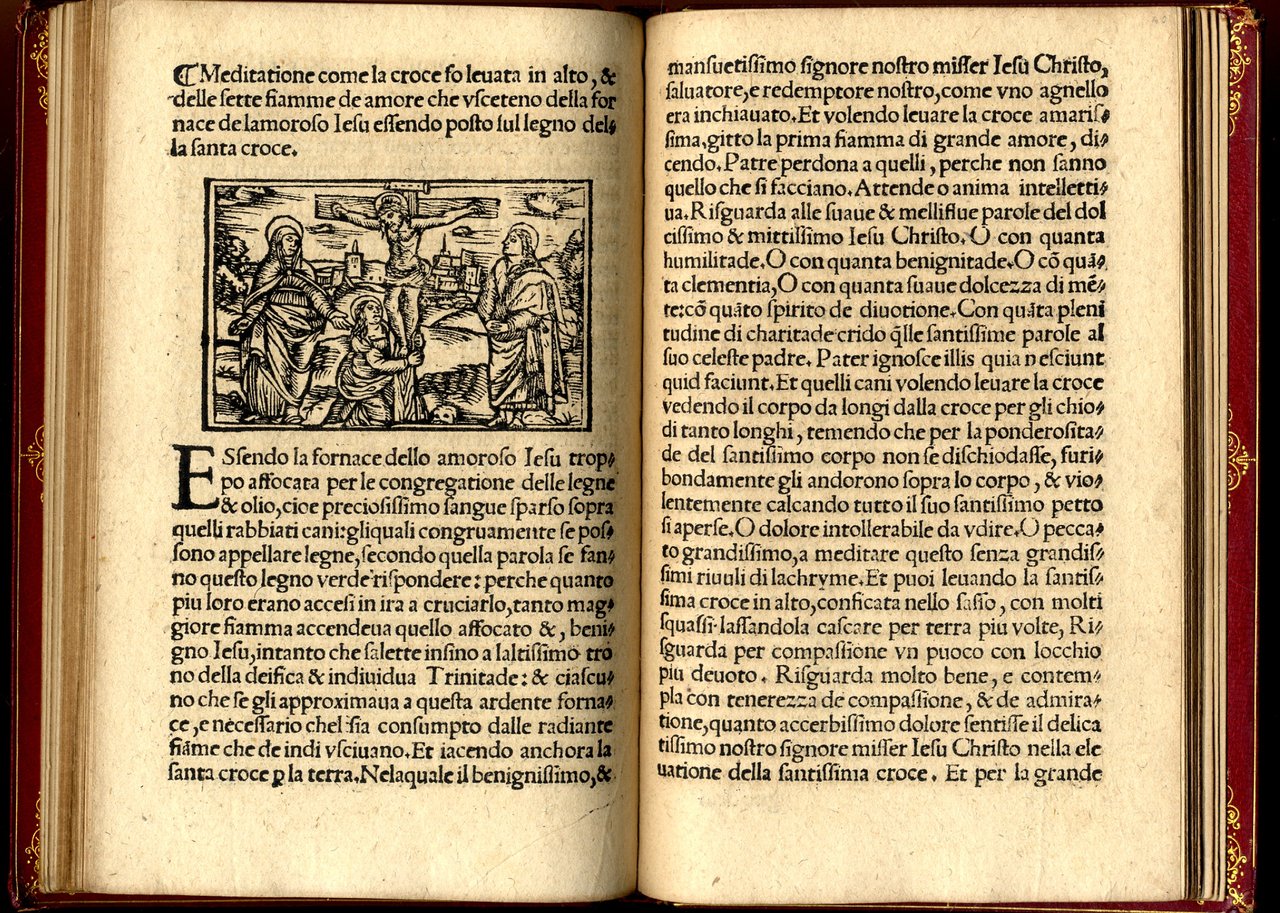 ¶ Meditatione come la croce fo leuata in alto, &
delle sette fiamme de amore che vsceteno della for
nace de lamoroso Iesu essendo posto sul legno del-
la santa croce.
ESsendo la fornace dello amoroso Iesu trop-
po affocata per le congregatione delle legne
& olio, cioe preciosissimo sangue sparso sopra
quelli rabbiati cani: gliquali congruamente se pos-
sono appellare legne, secondo quella parola se fan-
no questo legno verde rispondere: perche quanto
piu loro erano accesi in ira a cruciarlo, tanto mag-
giore fiamma accendeua quello affocato &, beni-
gno Iesu, intanto che salette insino a laltissimo tro
no della deifica & indiuidua Trinitade: & ciascu-
no che se gli approximaua a questa ardente forna-
ce, e necessario chel sia consumpto dalle radiante
fiãme che de indi vsciuano. Et iacendo anchora la
santa croce ꝑ la terra. Nelaquale il benignissimo, &
mansuetissimo signore nostro misser Iesu Christo,
saluatore, e redemptore nostro, come vno agnello
era inchiauato. Et volendo leuare la croce amaris-
sima, gitto la prima fiamma di grande amore, di-
cendo. Patre perdona a quelli, perche non sanno
quello che si facciano. Attende o anima intelletti-
ua. Risguarda alle suaue & melliflue parole del dol
cissimo & mittissimo Iesu Christo. O con quanta
humilitade. O con quanta benignitade. O cõ quã-
ta clementia, O con quanta suaue dolcezza di mẽ-
te: cõ quãto spirito de diuotione. Con quãta pleni
tudine di charitade crido q̃lle santissime parole al
suo celeste padre. Pater ignosce illis quia nesciunt
quid faciunt. Et quelli cani volendo leuare la croce
vedendo il corpo da longi dalla croce per gli chio-
di tanto longhi, temendo che per la ponderosita-
de del santissimo corpo non se dischiodasse, furi-
bondamente gli andorono sopra lo corpo, & vio-
lentemente calcando tutto il suo santissimo petto
si aperse. O dolore intollerabile da vdire. O pecca-
to grandissimo, a meditare questo senza grandis-
simi riuuli di lachryme. Et puoi leuando la santis-
sima croce in alto, conficata nello sasso, con molti
squassi lassandola cascare per terra piu volte, Ri-
sguarda per compassione vn puoco con locchio
piu deuoto. Risguarda molto bene, e contem-
pla con tenerezza de compassione, & de admira-
tione, quanto accerbissimo dolore sentisse il delica
tissimo nostro signore misser Iesu Christo nella ele
uatione della santissima croce. Et per la grande